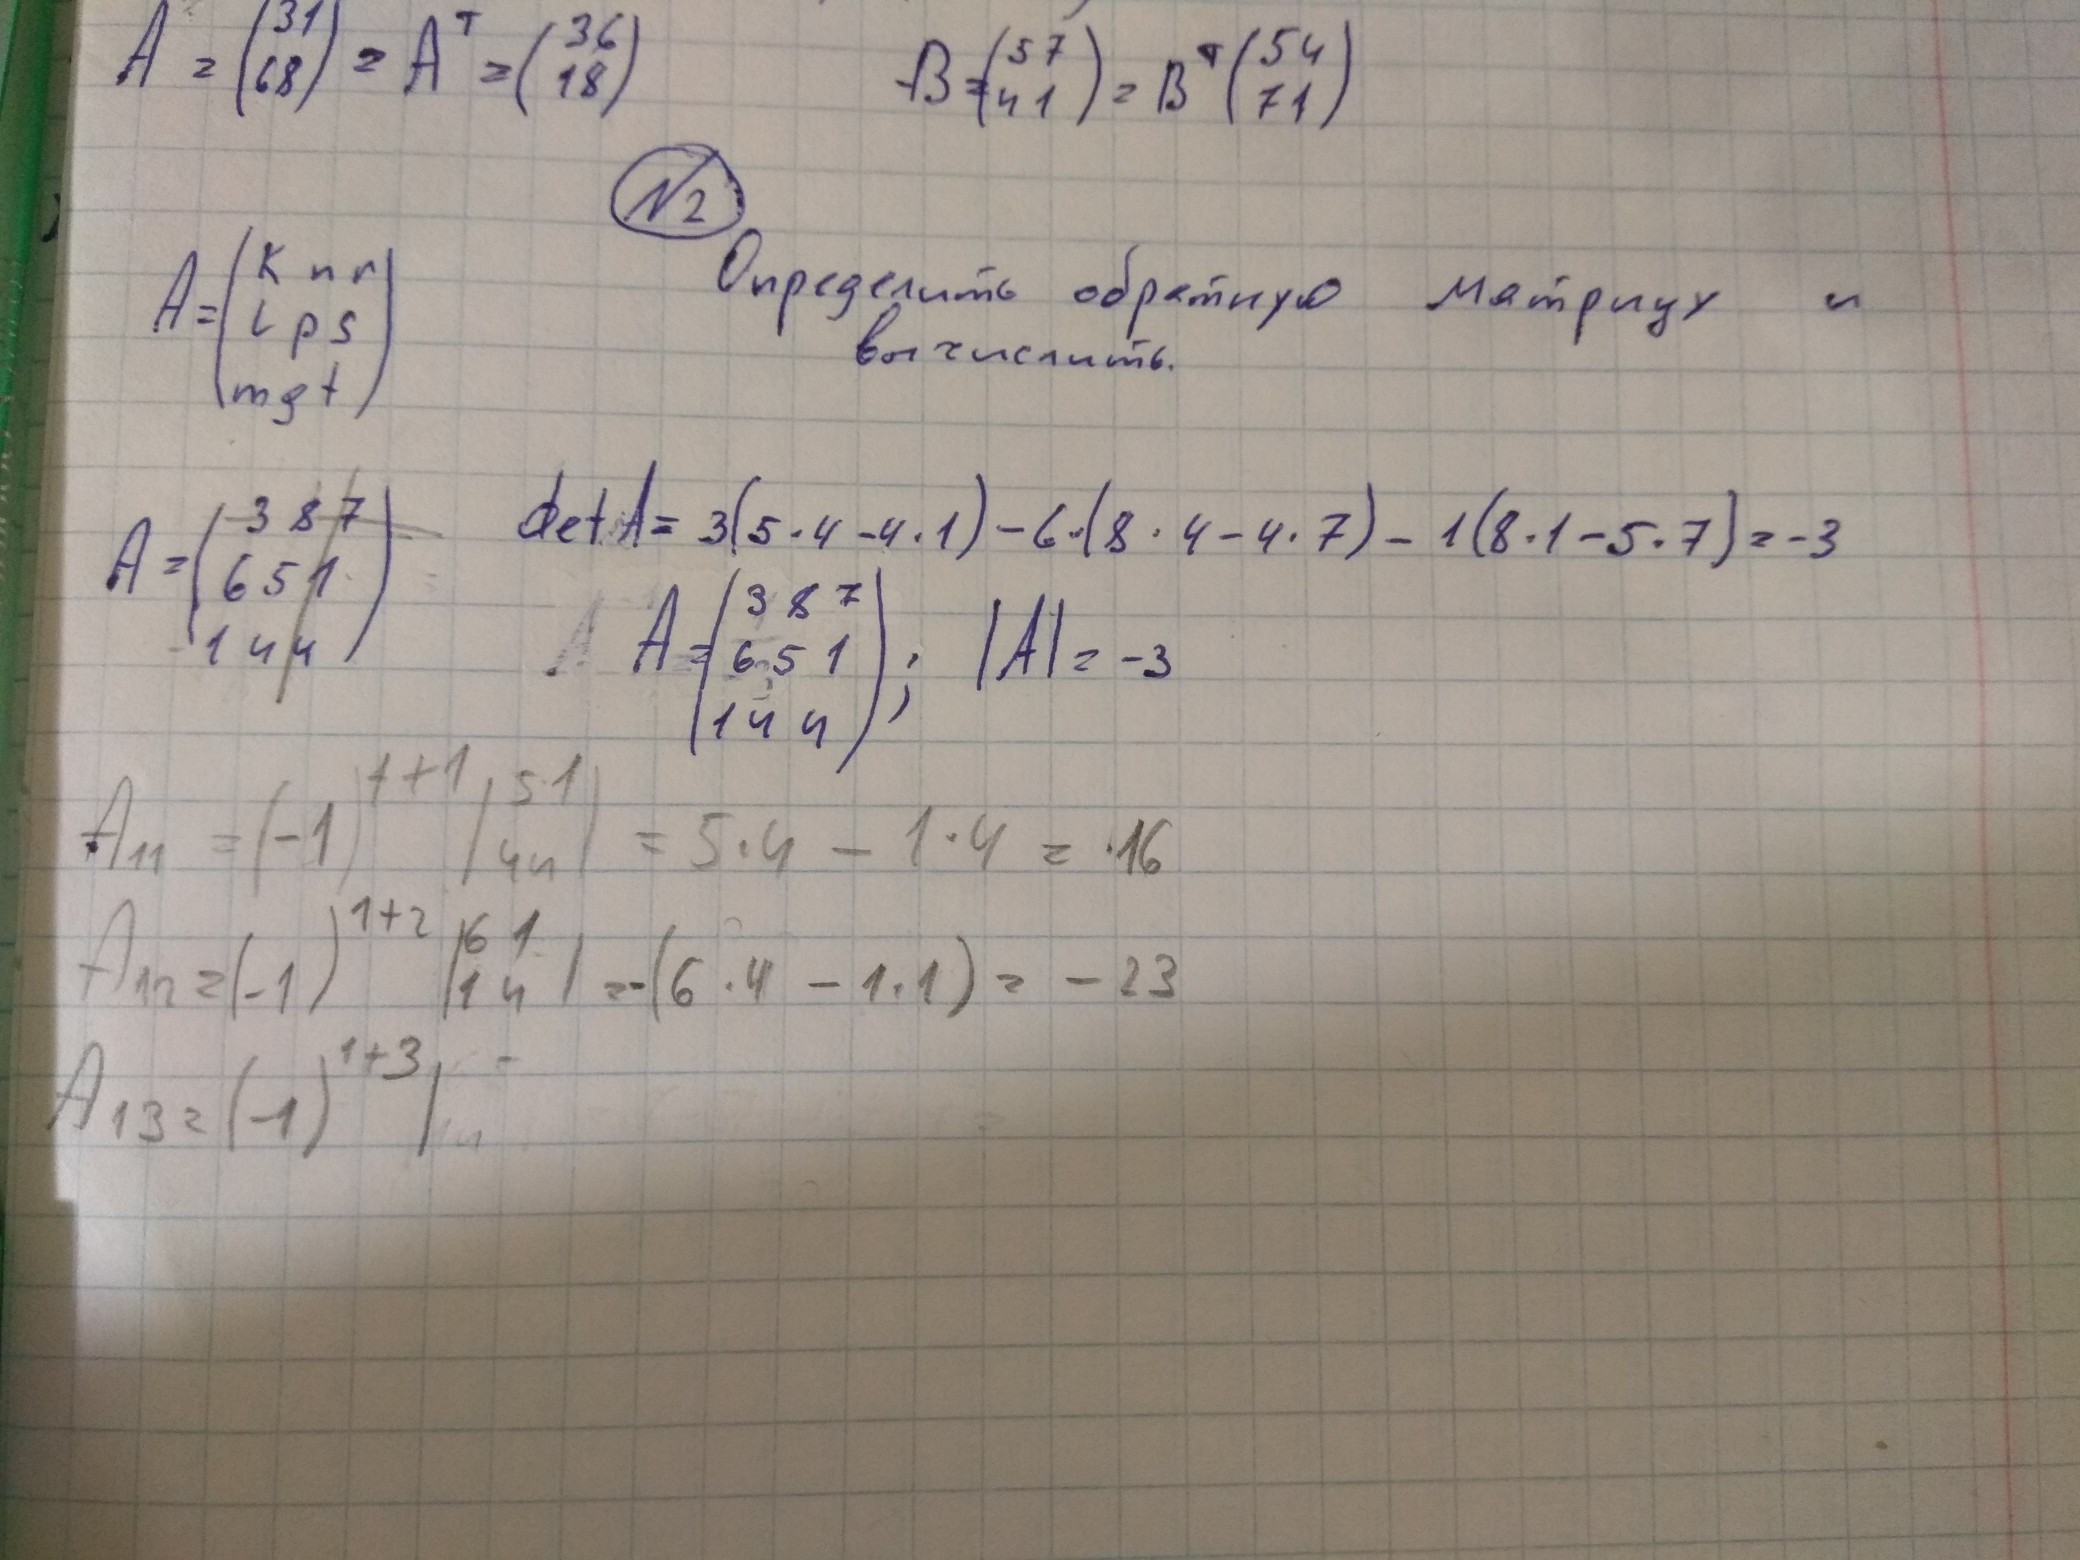 A = (31 68) = Aᵀ = (36 18) B = (57 41) = Bᵀ (54 71)
N2
Определить обратную матрицу и
вычислить.
A = (k n r
l p s
m g t)
A = (3 8 7
6 5 1
1 4 4)
det A = 3(5·4 - 4·1) - 6·(8·4 - 4·7) - 1(8·1 - 5·7) = -3
A = (3 8 7
6 5 1
1 4 4); |A| = -3
A₁₁ = (-1)¹⁺¹ |5 1 4 4| = 5·4 - 1·4 = 16
A₁₂ = (-1)¹⁺² |6 1 1 4| = -(6·4 - 1·1) = -23
A₁₃ = (-1)¹⁺³ |